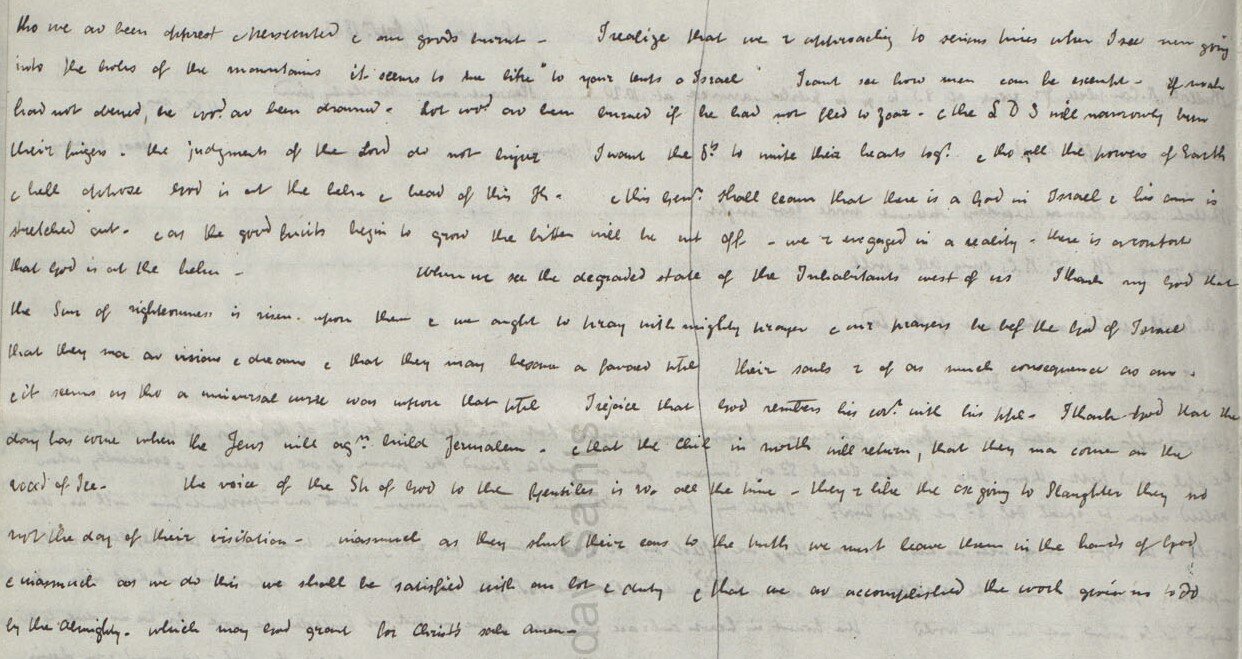 tho we av been opprest & persecuted & our goods burnt - I realize that we r approaching to serious times when I see men going
into the holes of the mountains it seems to me like "to your tents o Israel" I cant see how men can be exempt - if Noah
had not obeyed, he wod. av been drowned. Lot wod. av been burned if he had not fled to Zoar. & the L D S will narrowly burn
their fingers. the judgments of the Lord do not injure I want the Srs to unite their hearts togr. & tho all the powers of Earth
& hell oppose God is at the helm & head of this Ch. & this Genn. shall learn that there is a God in Israel & his arm is
stretched out. & as the good fruits begin to grow the bitter will be cut off - we r engaged in a reality - there is a comfort
that God is at the helm - When we see the degraded state of the Inhabitants west of us I thank my God that
the Sun of righteousness is risen upon them & we ought to pray with mighty prayer & our prayers be bef the God of Israel
that they ma av visions & dreams & that they may become a favored ppl their souls r of as much consequence as ours.
& it seems as tho a universal curse was upon that ppl I rejoice that God rembers his covt. with his ppl. I thank God that the
day has come when the Jews will agn. build Jerusalem. & that the Chil in north will return, that they ma come on the
road of Ice. the voice of the Sts of God to the Gentiles is wo. all the time - they r like the ox going to Slaughter they no
not the day of their visitation - inasmuch as they shut their ears to the truth we must leave them in the hands of God
& inasmuch as we do this we shall be satisfied with our lot & duty & that we av accomplished the work given us to do
by the Almighty. which may God grant for Christ's sake Amen -
day Saints